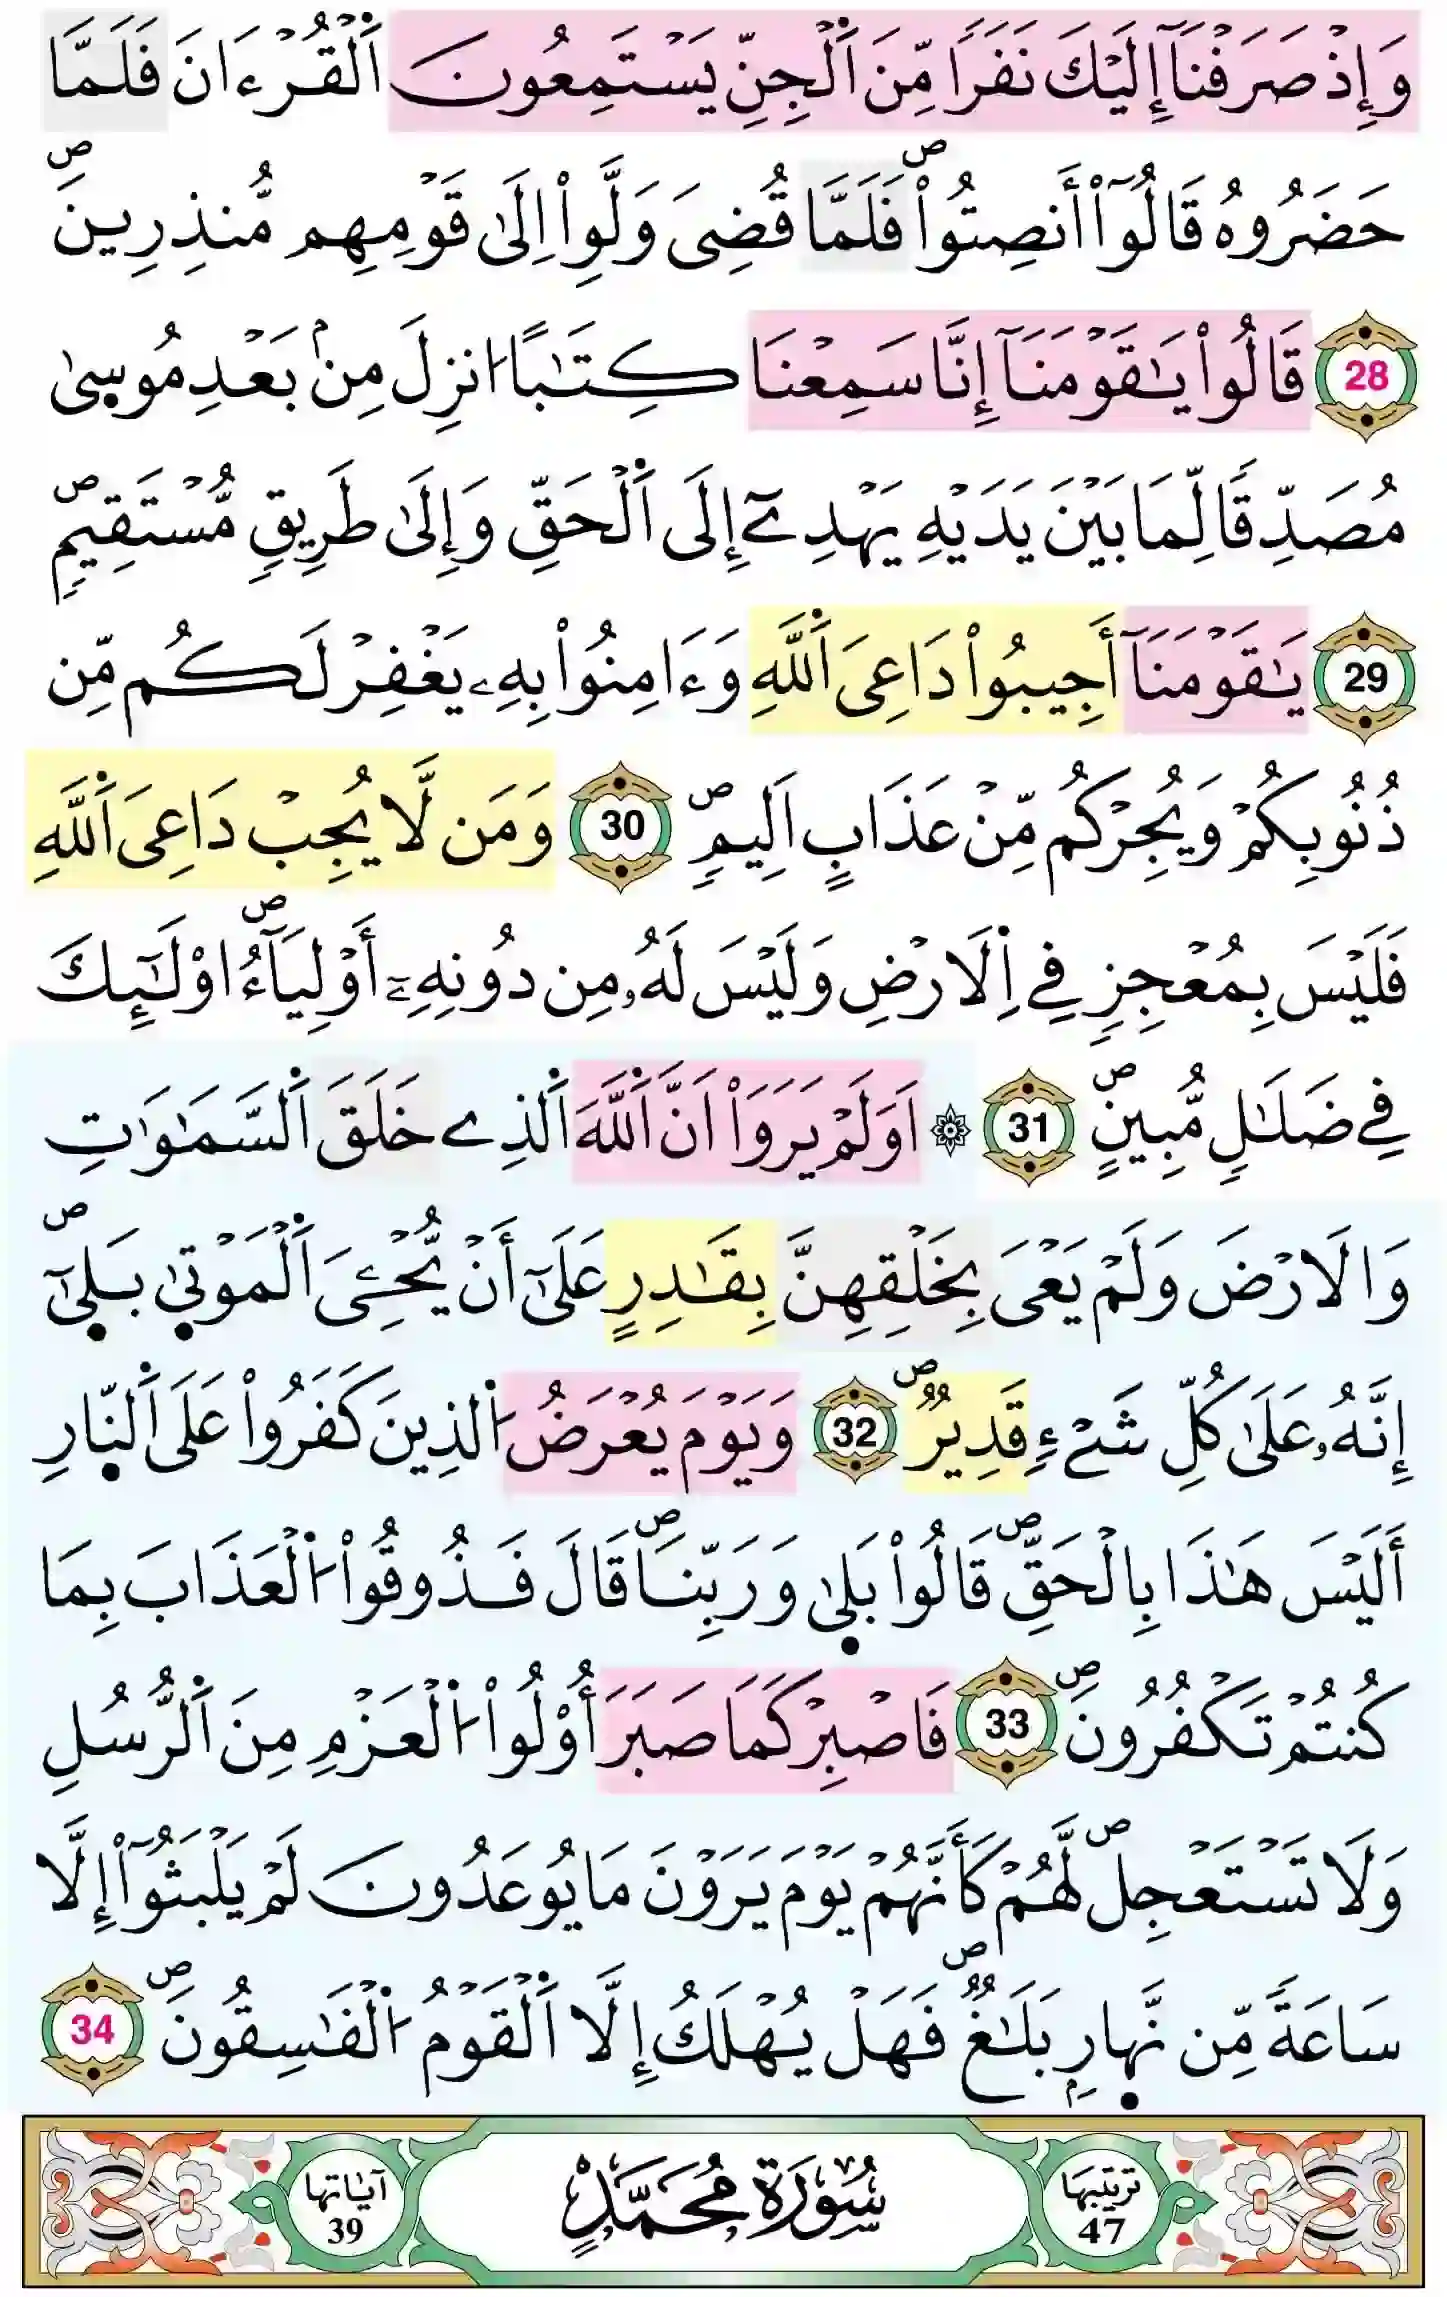 وَإِذْ صَرَفْنَآ إِلَيْكَ نَفَرٗا مِّنَ اَ۬لْجِنِّ يَسْتَمِعُونَ اَ۬لْقُرْءَانَ فَلَمَّا
حَضَرُوهُ قَالُوٓاْ أَنصِتُواْۖ فَلَمَّا قُضِيَ وَلَّوِاْ اِلَىٰ قَوْمِهِم مُّنذِرِينَۖ
28 قَالُواْ يَٰقَوْمَنَآ إِنَّا سَمِعْنَا كِتَٰباً ا۟نزِلَ مِنۢ بَعْدِ مُوسىٰ
مُصَدِّقاٗ لِّمَا بَيْنَ يَدَيْهِ يَهْدِےٓ إِلَى اَ۬لْحَقِّ وَإِلَىٰ طَرِيقٖ مُّسْتَقِيمٖۖ
29 يَٰقَوْمَنَآ أَجِيبُواْ دَاعِيَ اَ۬للَّهِ وَءَامِنُواْ بِهِۦ يَغْفِرْ لَكُم مِّن
ذُنُوبِكُمْ وَيُجِرْكُم مِّنْ عَذَابٍ اَلِيمٖۖ 30 وَمَن لَّا يُجِبْ دَاعِيَ اَ۬للَّهِ
فَلَيْسَ بِمُعْجِزٖ فِے اِ۬لَارْضِ وَلَيْسَ لَهُۥ مِن دُونِهِۦٓ أَوْلِيَآءُۖ ا۟وْلَٰٓئِكَ
فِے ضَلَٰلٖ مُّبِينٍۖ 31 ۞ اَوَلَمْ يَرَوَاْ اَنَّ اَ۬للَّهَ اَ۬لذِے خَلَقَ اَ۬لسَّمَٰوَٰتِ
وَالَارْضَ وَلَمْ يَعْيَ بِخَلْقِهِنَّ بِقَٰدِرٍ عَلَىٰٓ أَنْ يُّحْـِۧيَ اَ۬لْمَوْتىٰ بَلىٰٓۖ
إِنَّهُۥ عَلَىٰ كُلِّ شَےْءٖ قَدِيرٞۖ 32 وَيَوْمَ يُعْرَضُ اُ۬لذِينَ كَفَرُواْ عَلَى اَ۬لنّ۪ارِ
أَلَيْسَ هَٰذَا بِالْحَقِّۖ قَالُواْ بَلىٰ وَرَبِّنَاۖ قَالَ فَذُوقُواْ اُ۬لْعَذَابَ بِمَا
كُنتُمْ تَكْفُرُونَۖ 33 فَاصْبِرْ كَمَا صَبَرَ أُوْلُواْ اُ۬لْعَزْمِ مِنَ اَ۬لرُّسُلِ
وَلَا تَسْتَعْجِلۖ لَّهُمْ كَأَنَّهُمْ يَوْمَ يَرَوْنَ مَا يُوعَدُونَ لَمْ يَلْبَثُوٓاْ إِلَّا
سَاعَةٗ مِّن نَّه۪ارِۢ بَلَٰغٞۖ فَهَلْ يُهْلَكُ إِلَّا اَ۬لْقَوْمُ اُ۬لْفَٰسِقُونَۖ 34
ترتيبها 47 سُورَةُ مُحَمَّدٍ آياتها 39